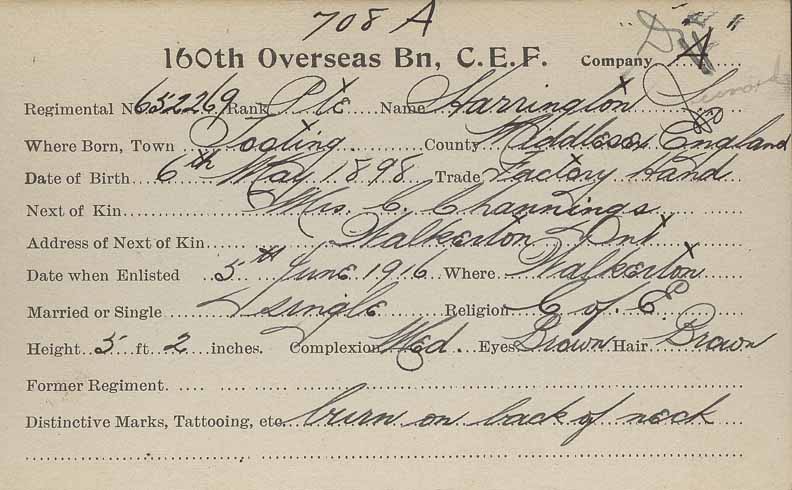 708 A
160th Overseas Bn, C.E.F. Company A
Regimental No 652269 Rank Pte Name Harrington L
Where Born, Town Tooting County Middlesex England
Date of Birth 6th May 1898 Trade Factory Hand
Next of Kin Mrs. C. Channings
Address of Next of Kin Walkerton Ont
Date when Enlisted 5th June 1916 Where Walkerton
Married or Single Single Religion C of E
Height 5 ft 2 inches. Complexion Med. Eyes Brown Hair Brown
Former Regiment
Distinctive Marks, Tattooing, etc. burn on back of neck